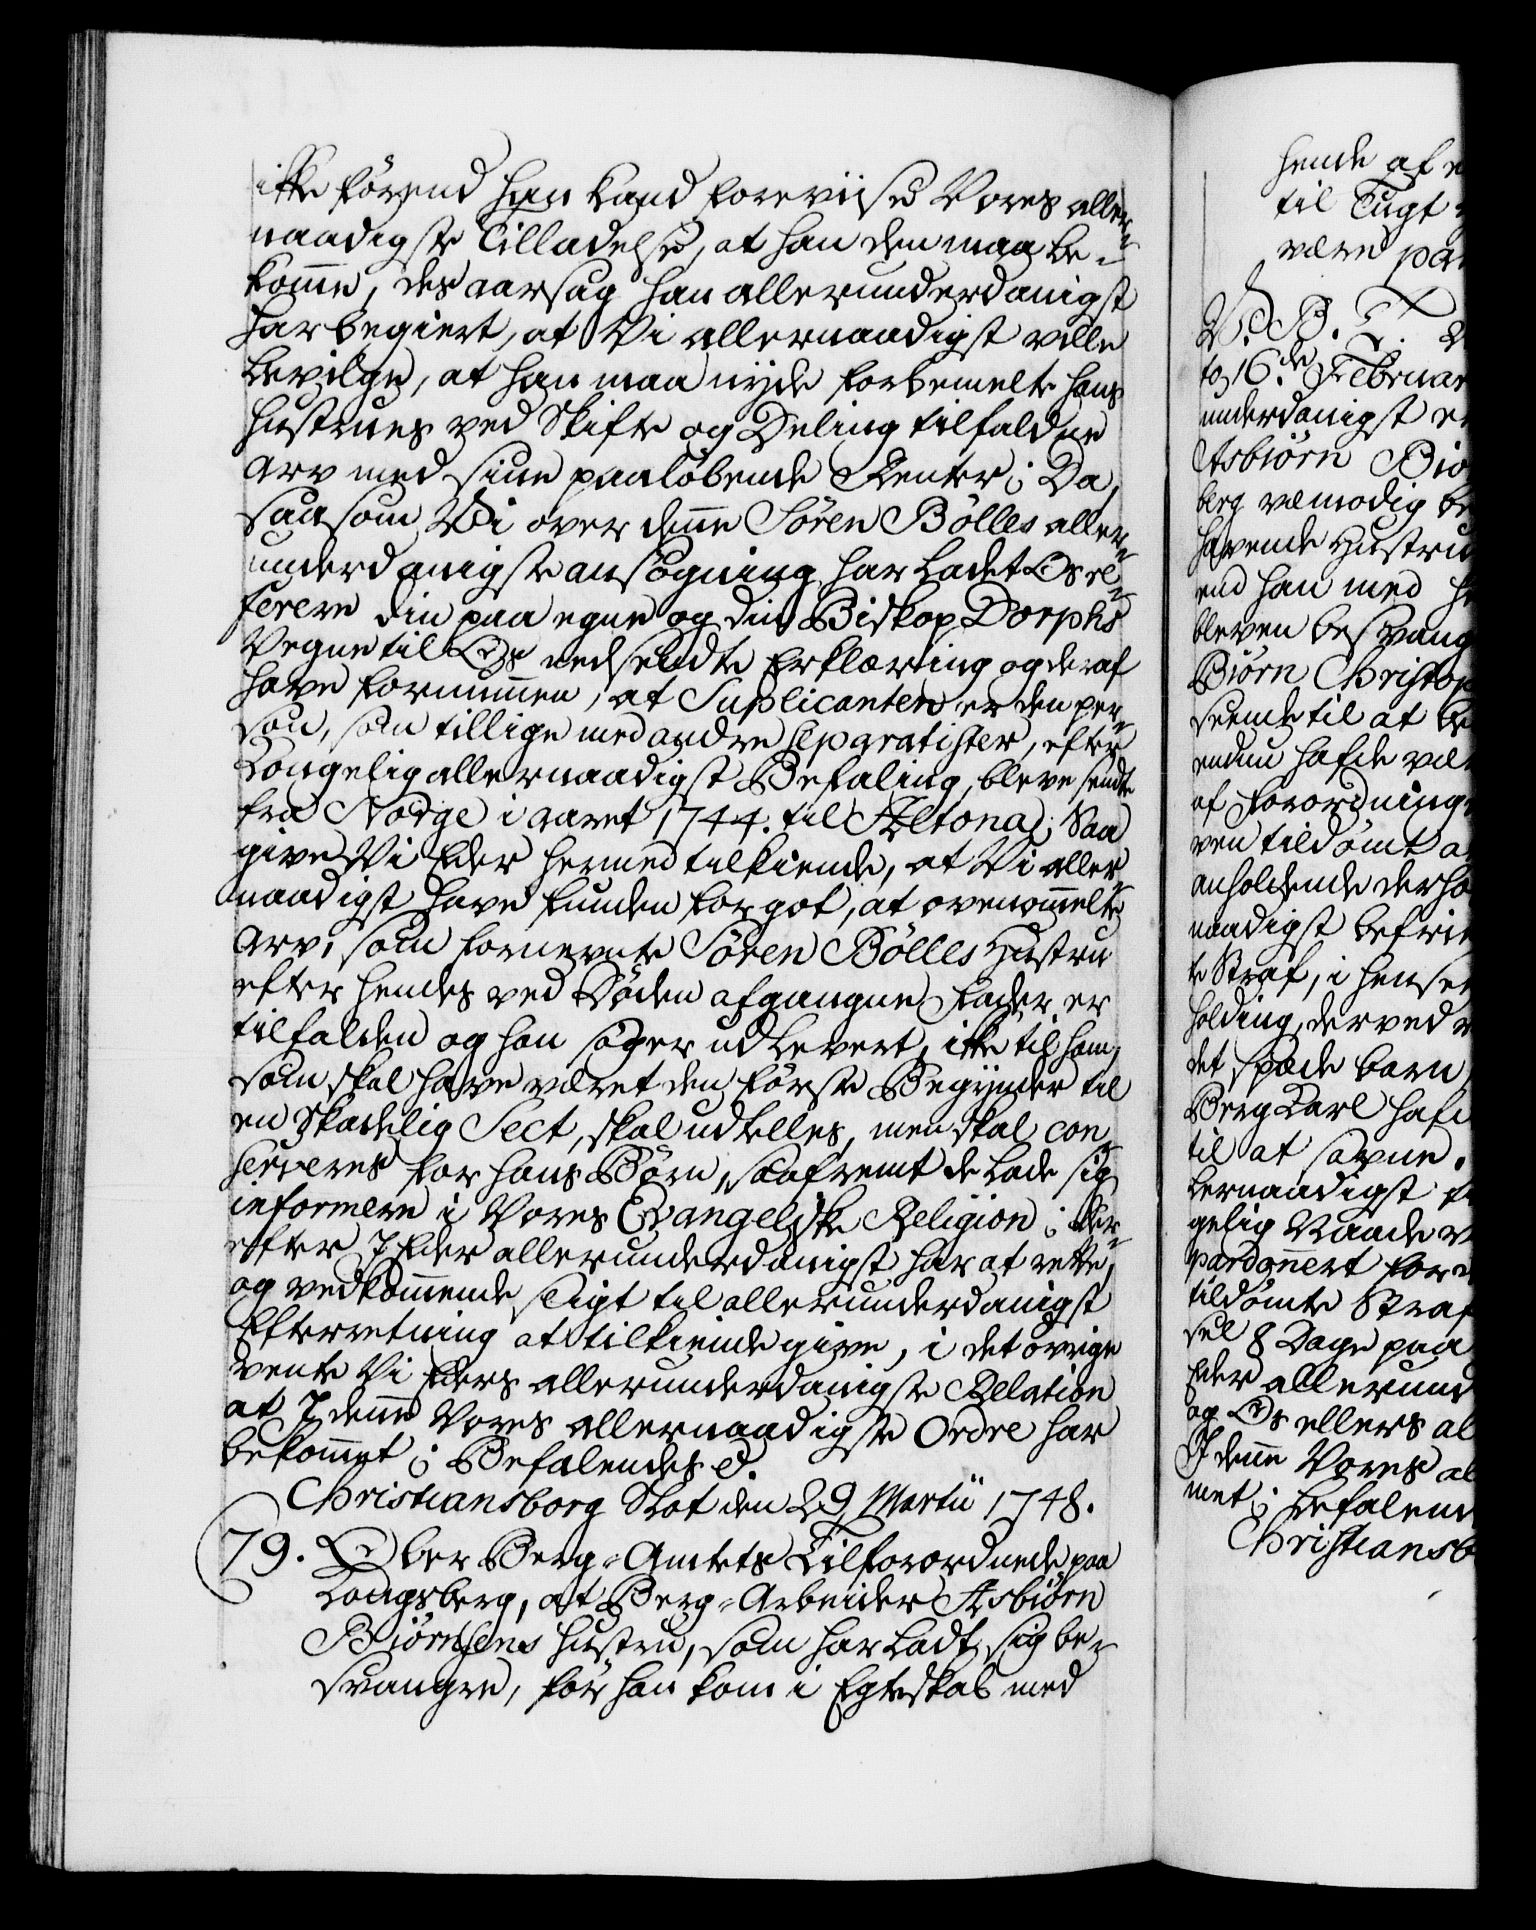 ikke førend han kand foreviise Vores aller-
naadigste Tilladelse, at han den maa be-
komme, des aarsag han allerunderdanigst
har begiert, at Vi allernaadigst ville
bevilge, at han maa nyde forbemelte hans
Hustrues ved Skifte og Deling tilfaldne
Arv med sine paaløbende Renter; Da,
saasom Vi over denne Søren Bølles aller-
underdanigste ansøgning har ladet Os re-
ferere din paa egne og din Biskop Dorphs
Vegne til Os nedsendte Erklæring og deraf
have fornummen, at Suplicanten er den per-
son, som tillige med andre Separatister, efter
Kongelig allernaadigst Befaling, bleve sendte
fra Norge i aaret 1744. til Altona; Saa
give Vi Eder hermed tilkiende, at Vi aller-
naadigst have funden for got, at ovenommelte
Arv, som fornevnte Søren Bølles Hustru
efter hendes ved Døden afgangne Fader er
tilfalden og han søger udlevert, ikke til ham,
som skal have været den første Begynder til
en skadelig Sect, skal udtelles, men skal con-
serveres for hans Børn, saafremt de lade sig
informere i Vores Evangeliske Religion; Der-
efter I Eder allerunderdanigst har at rette,
og vedkommende sligt til allerunderdanigst
Efterretning at tilkiende give, i det øvrige
vente Vi Eders allerunderdanigste Relation
at I denne Vores allernaadigste Ordre har
bekommet; Befalendes &.
Christiansborg Slot den 29 Martii 1748.
79. Ober Berg-Amtets Tilforordnede paa
Kongsberg, at Berg-Arbeider Asbiørn
Biørnsens Hustru, som har ladt sig be-
svangre, før han kom i Egteskab med
hende af
til Tugt
være pa
V. B. T.
to 16de Februar
underdanigst
Asbiørn Biø
berg vemodig be
havende Hustru
end han med
bleven besvang
Biørn Christop
seende til at
endnu hafde
af Forordning
ven tildømt
anholdende der
naadigst befrie
te Straf, i hense
holding, derved
det spæde barn
Berg Karl hafde
til at savne.
lernaadigst
gelig Naade
pardonnert for
tildømte Straf
sel 8 Dage paa
Eder allerund
og Os ellers al
I denne Vores al
met; befalend
Christiansb